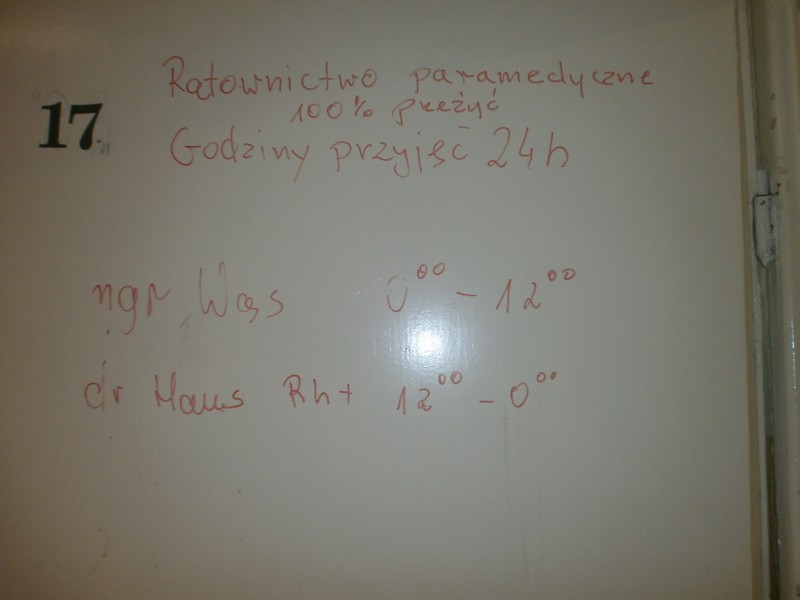 17
Ratownictwo paramedyczne
100% przeżyć
Godziny przyjść 24h
mgr Wąs 0⁰⁰ - 12⁰⁰
dr Haus Rh+ 12⁰⁰ - 0⁰⁰